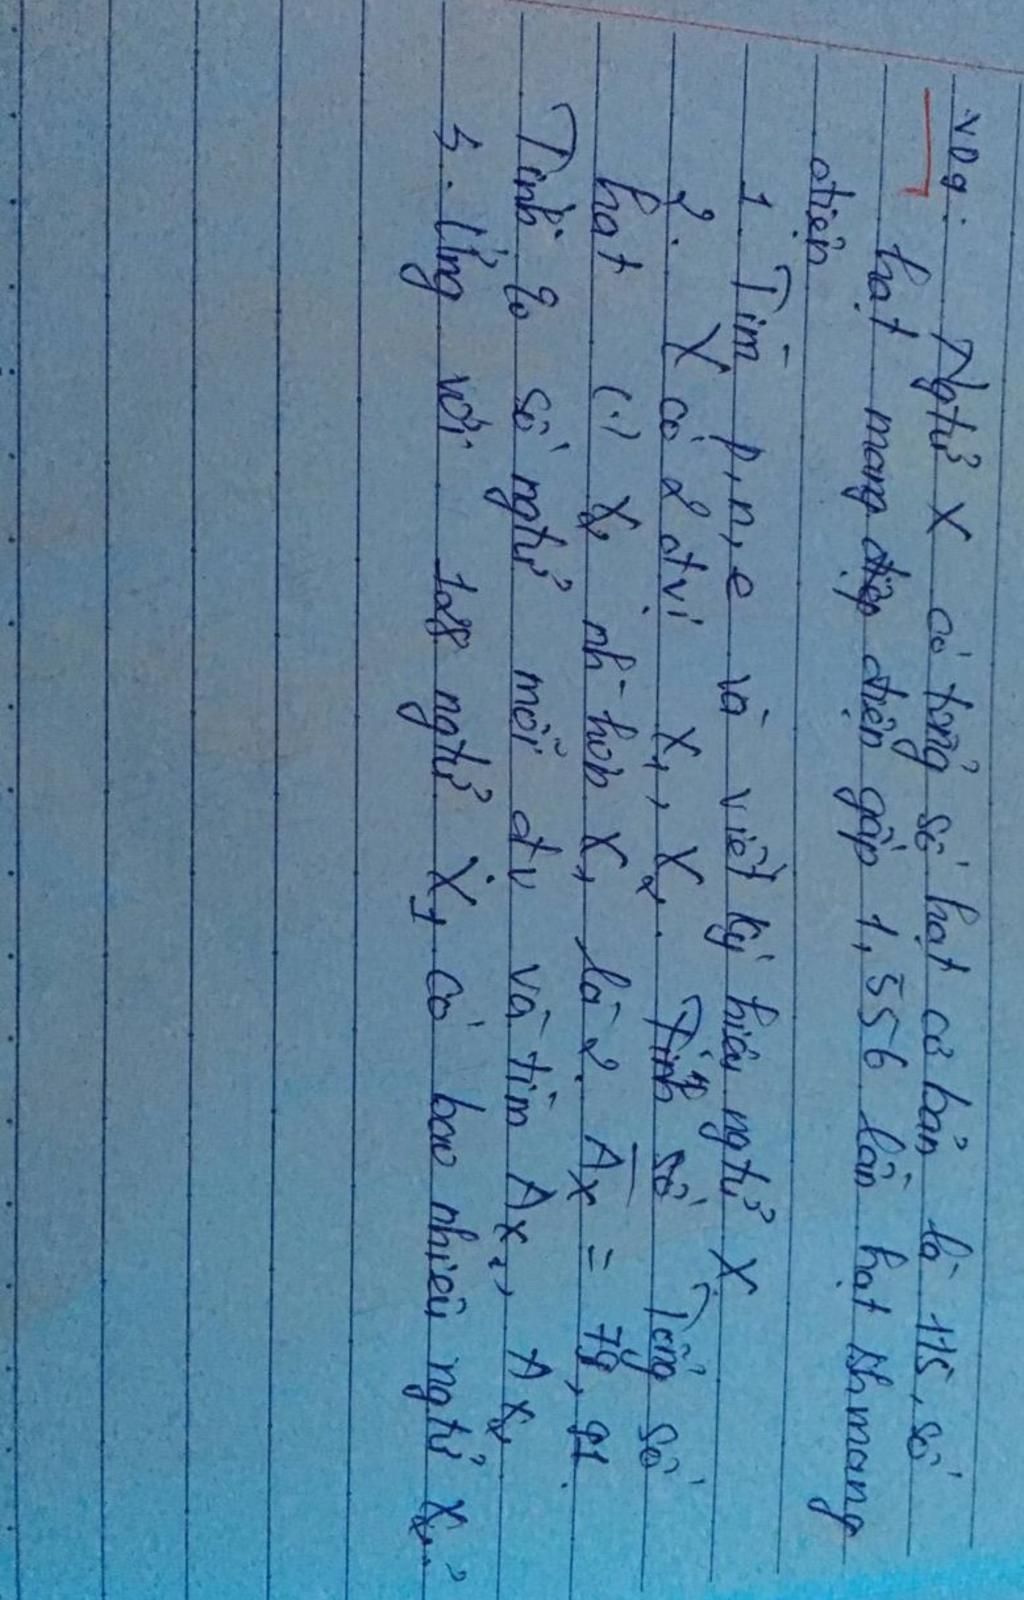 VD9: Ngtử X có tổng số hạt cơ bản là 115, số
hạt mang điện gấp 1,556 lần hạt kh mang
điện
1. Tìm p, n, e và viết ký hiệu ngtử X
2. X có 2 đvị X₁, X₂. Tổng số
hạt (.) X₂ nh~ hơn X₁ là 2. A̅x = 79,91.
Tính % số ngtử mỗi đv và tìm Ax₁, Ax₂
3. Ứng với 128 ngtử X₁ có bao nhiêu ngtử X₂?